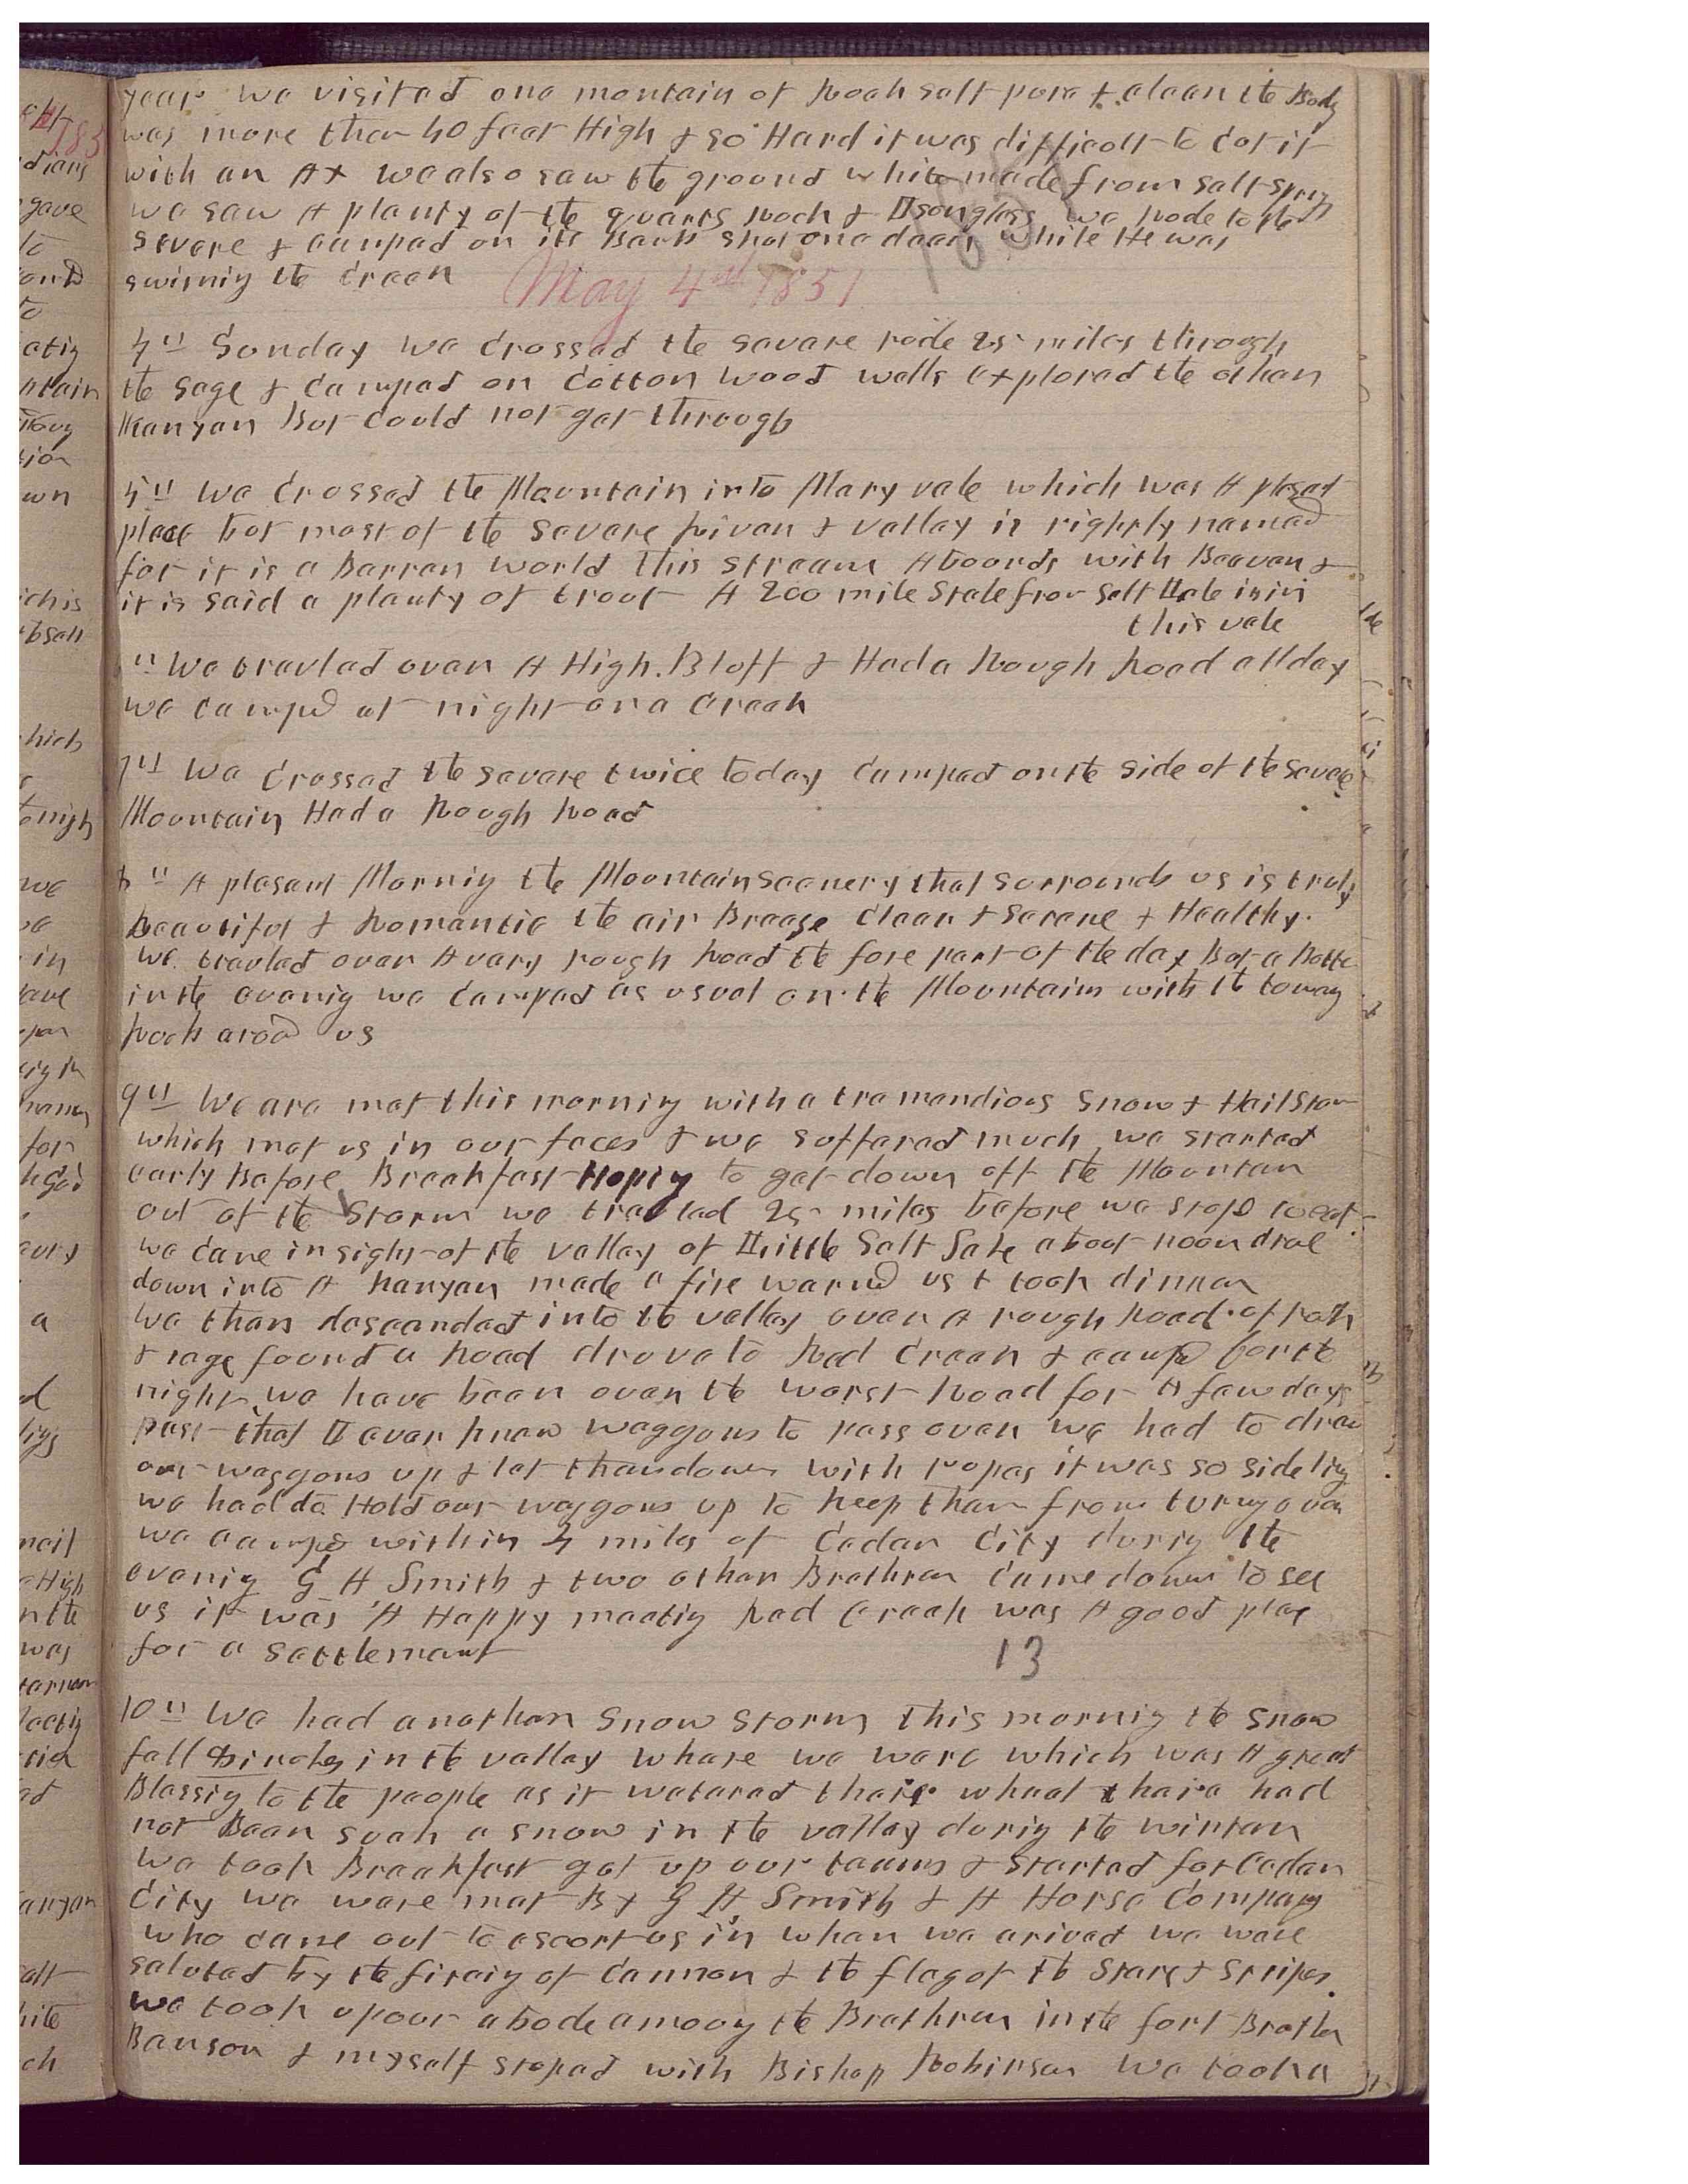 year we visited one montain of Rock salt pure & clean the Body
was more than 40 feet High & so Hard it was difficult to cut it
with an Ax we also saw the ground white made from salt springs
we saw A plenty of the quarts Rock & Isonglass we rode to the
severe & camped on its Bank shot one deer while He was
swiming the creek
May 4th 1851
1851
4th Sonday we crossed the severe rode 25 miles through
the sage & camped on Cotton Wood wells explored the other
Kanyan But could not get through
5th We crossed the Mountain into Mary vale which was A plesant
place but most of the severe River & valley is rightly named
for it is a Barren world this stream Abounds with Beaver &
it is said a plenty of trout A 200 mile stake from Salt Lake is in
this vale
th We travled over A High Bluff & Had a Rough Road all day
we camped at night on a Creek
7th We crossed the severe twice to day camped on the side of the severe
Mountain Had a Rough Road
8th A plesant Morning the Mountain scenery that surrounds us is truly
beautiful & Romantic the air Breeze clear & serene & Healthy.
we travled over A very rough Road the fore part of the day But a Better
in the evening we camped as usual on the Mountains with the towering
Rock around us
9th We are met this morning with a tremendious snow & Hail storm
which met us in our faces & we suffered much we started
early Before Breakfast Hoping to get down off the Mountain
out of the storm we travled 25 miles before we stoped to eat
we came in sight of the valley of Little Salt Lake about noon drove
down into A kanyan made a fire warmed us & took dinner
We then descended into the valley over A rough Road of rock
& sage found a Road drove to Red Creek & camped for the
night, we have been over the worst Road for A few days
past that I ever knew waggons to pass over we had to draw
our waggons up & let them down with ropes it was so sideling
we had to Hold our waggons up to keep them from turning over
we camped within 4 miles of Cedar City during the
evening G A Smith & two other Brethren came down to see
us it was A Happy meeting Red Creek was A good place
for a settlement
13
10th We had another snow storm this morning the snow
fall inches in the valley whare we ware which was A great
Blessing to the people as it watered their wheat thare had
not Been such a snow in the valley during the winter
We took Breakfast got up our teams & started for Cedar
City we ware met By G A Smith & A Horse Company
who came out to escort us in when we arived we ware
saluted by the fireing of Cannon & the flag of the Stars & Stripes.
we took up our abode among the Brethren in the fort Brother
Benson & myself stoped with Bishop Robinson We took a